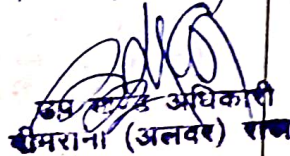 उप खण्ड अधिकारी
नीमराना (अलवर) राज